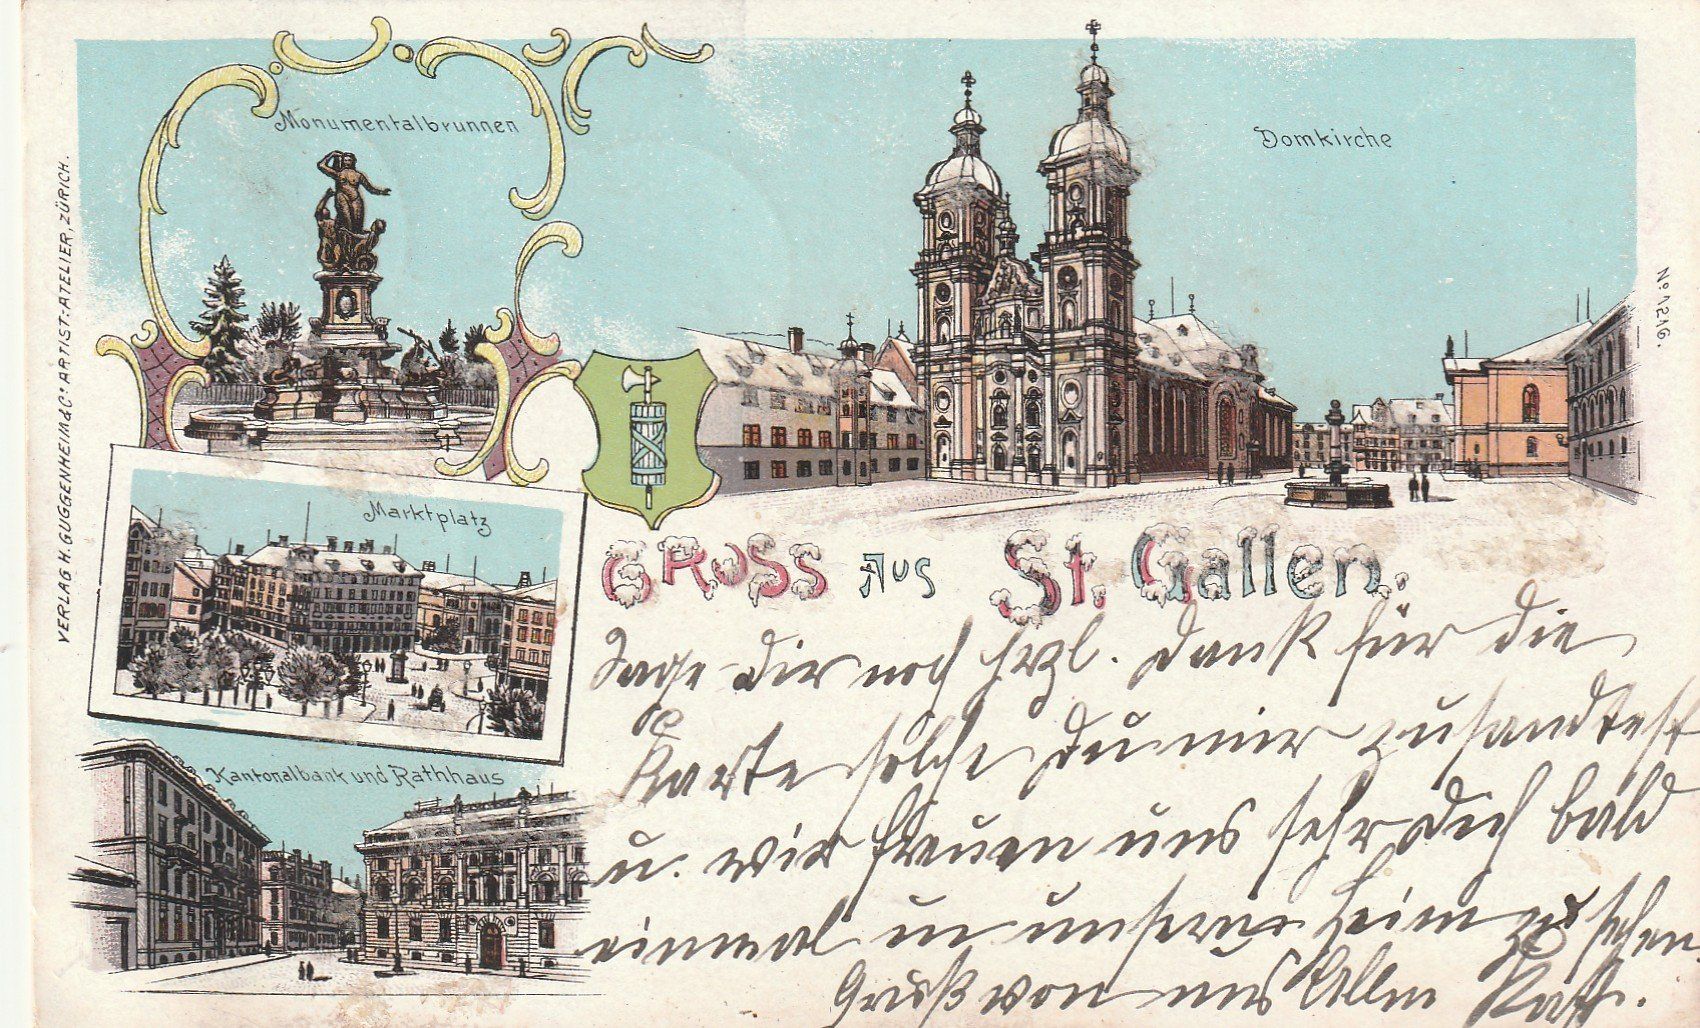 Monumentalbrunnen
Domkirche
VERLAG H. GUGGENHEIM & Co. ARTIST: ATELIER, ZÜRICH.
No. 1216.
Marktplatz
Kantonalbank und Rathhaus
GRUSS AUS St. Gallen.
Sage Dir noch hrzl. Dank für die
Karte solche Du mir zusandtest
u. wir freuen uns sehr Dich bald
einmal in unserer Heim zu sehen.
Gruß von uns Allen